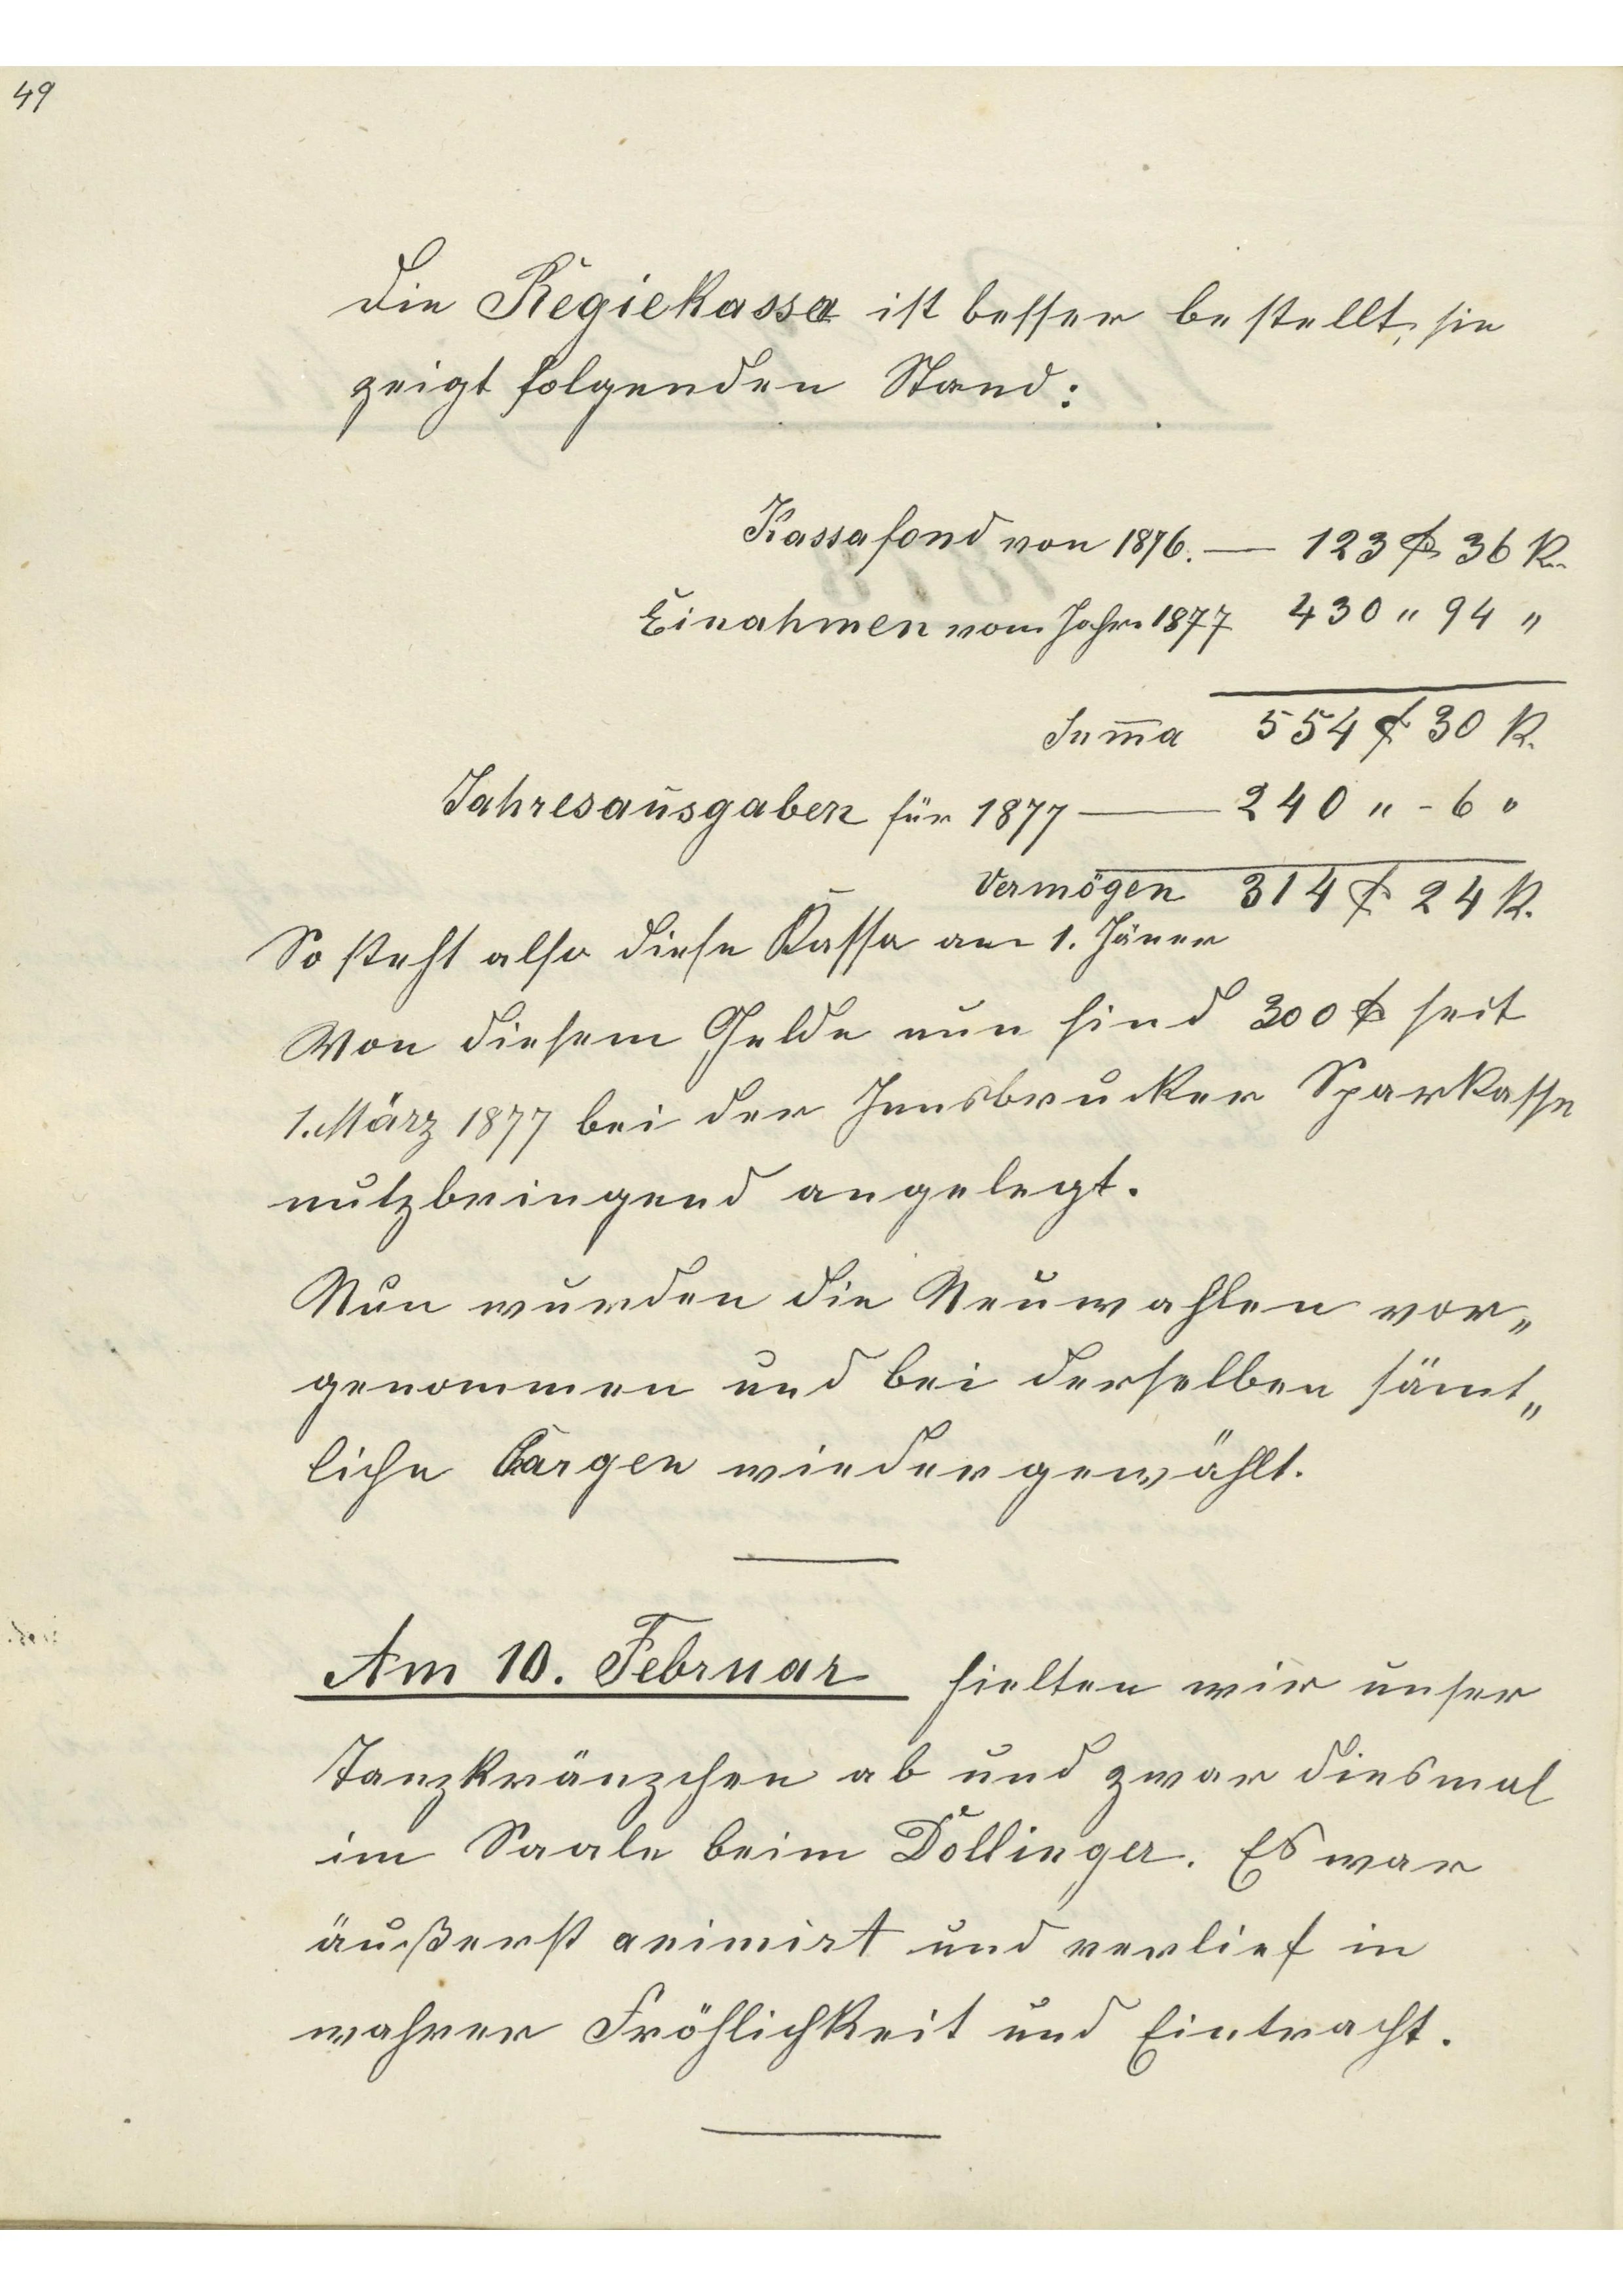 49
Die Regiekassa ist besser bestellt, sie
zeigt folgenden Stand:
Kassafond von 1876. — 123 f 36 K.
Einahmen vom Jahre 1877 430 " 94 "
Sum̅a 554 f 30 K.
Jahresausgaben für 1877 — 240 " - 6 "
Vermögen 314 f 24 K.
So steht also diese Kassa am 1. Jäner
Von diesem Gelde nun sind 300 f seit
1. März 1877 bei der Innsbrucker Sparkasse
nutzbringend angelegt.
Nun wurden die Neuwahlen vor„
genommen und bei derselben sämt„
liche Cargen wiedergewählt.
Am 10. Februar hielten wir unser
Tanzkränzchen ab und zwar diesmal
im Saale beim Döllinger. Es war
äußerst animirt und verlief in
wahrer Fröhlichkeit und Eintracht.